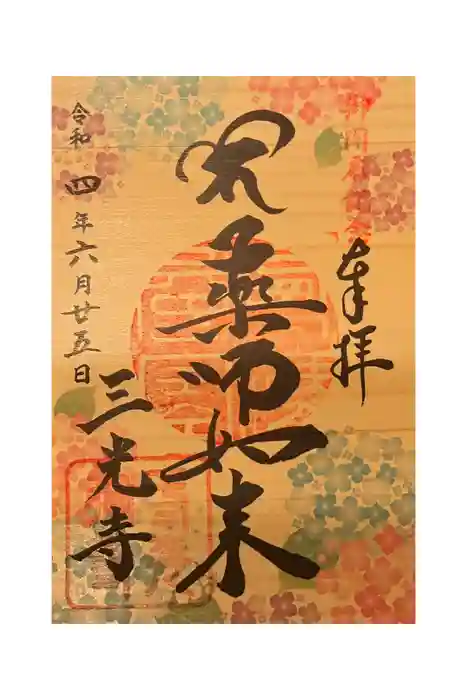 奉拝
薬師如来
三光寺
令和 四年六月廿五日